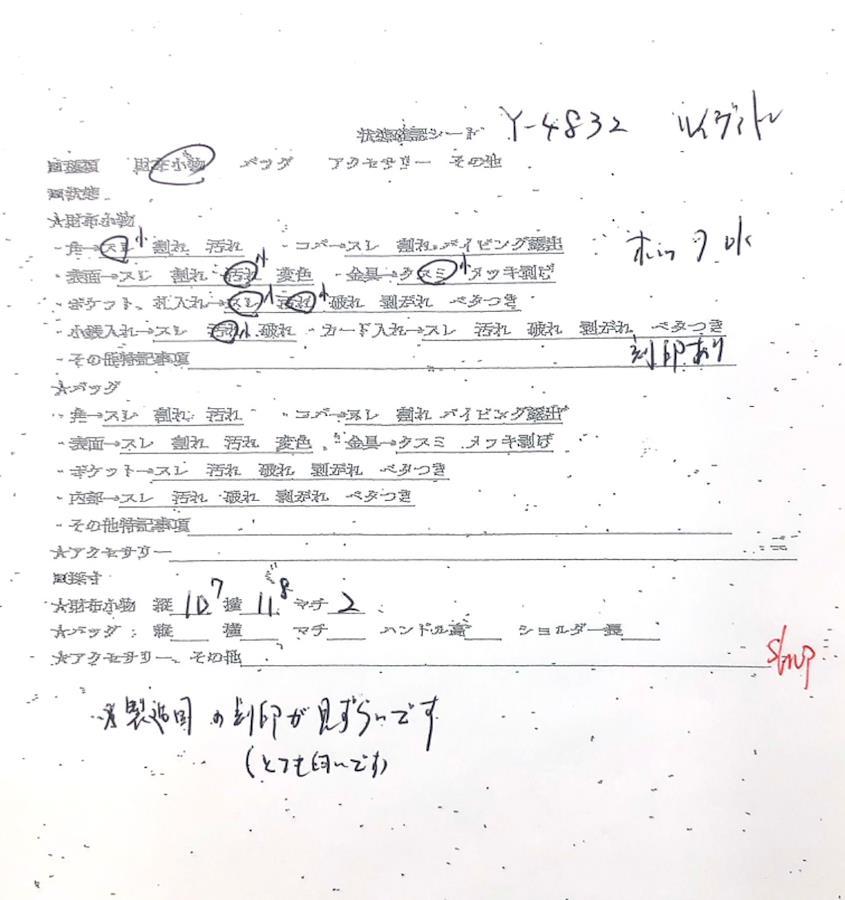 状態確認シート Y-4832 ルイヴィトン
■種類 財布小物 バッグ アクセサリー その他
■状態
★財布小物
・角→スレ小 割れ 汚れ ・コバ→スレ 割れ パイピング露出
・表面→スレ 割れ 汚れ小 変色 ・金具→クスミ小 メッキ剥げ
・ポケット、札入れ→スレ小 汚れ小 破れ 剥がれ ベタつき
・小銭入れ→スレ 汚れ小 破れ ・カード入れ→スレ 汚れ 破れ 剥がれ ベタつき
・その他特記事項 刻印あり
★バッグ
・角→スレ 割れ 汚れ ・コバ→スレ 割れ パイピング露出
・表面→スレ 割れ 汚れ 変色 ・金具→クスミ メッキ剥げ
・ポケット→スレ 汚れ 破れ 剥がれ ベタつき
・内部→スレ 汚れ 破れ 剥がれ ベタつき
・その他特記事項
★アクセサリー
■採寸
★財布小物 縦 10 7 横 11 8 マチ 2
★バッグ: 縦 横 マチ ハンドル高 ショルダー長
★アクセサリー、その他
※製造国の刻印が見ずらいです